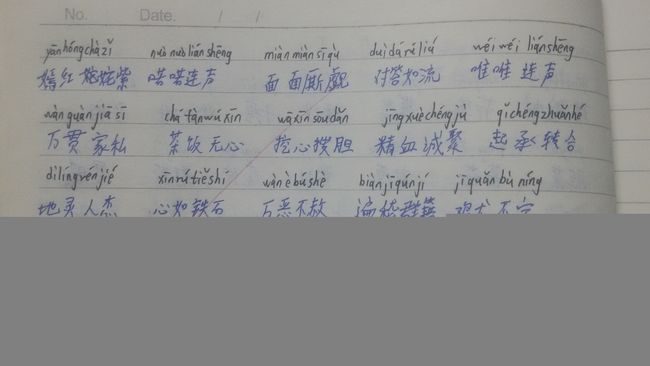 No.
Date. / /
yānhóngchàzǐ nuò nuò liánshēng miàn miàn sī qù duì dá rú liú wéi wéi liánshēng
嫣红姹姹紫 喏喏连声 面面厮觑 对答如流 唯唯连声
wàn guàn jiā sī chá fàn wú xīn wā xīn sōu dǎn jīng xuè chéng jù qǐ chéng zhuǎn hé
万贯家私 茶饭无心 挖心搜胆 精血诚聚 起承转合
dì líng rén jié xīn rú tiě shí wàn è bú shè biàn jī qún jí jī quǎn bù níng
地灵人杰 心如铁石 万恶不赦 遍稽群籍 鸡犬不宁